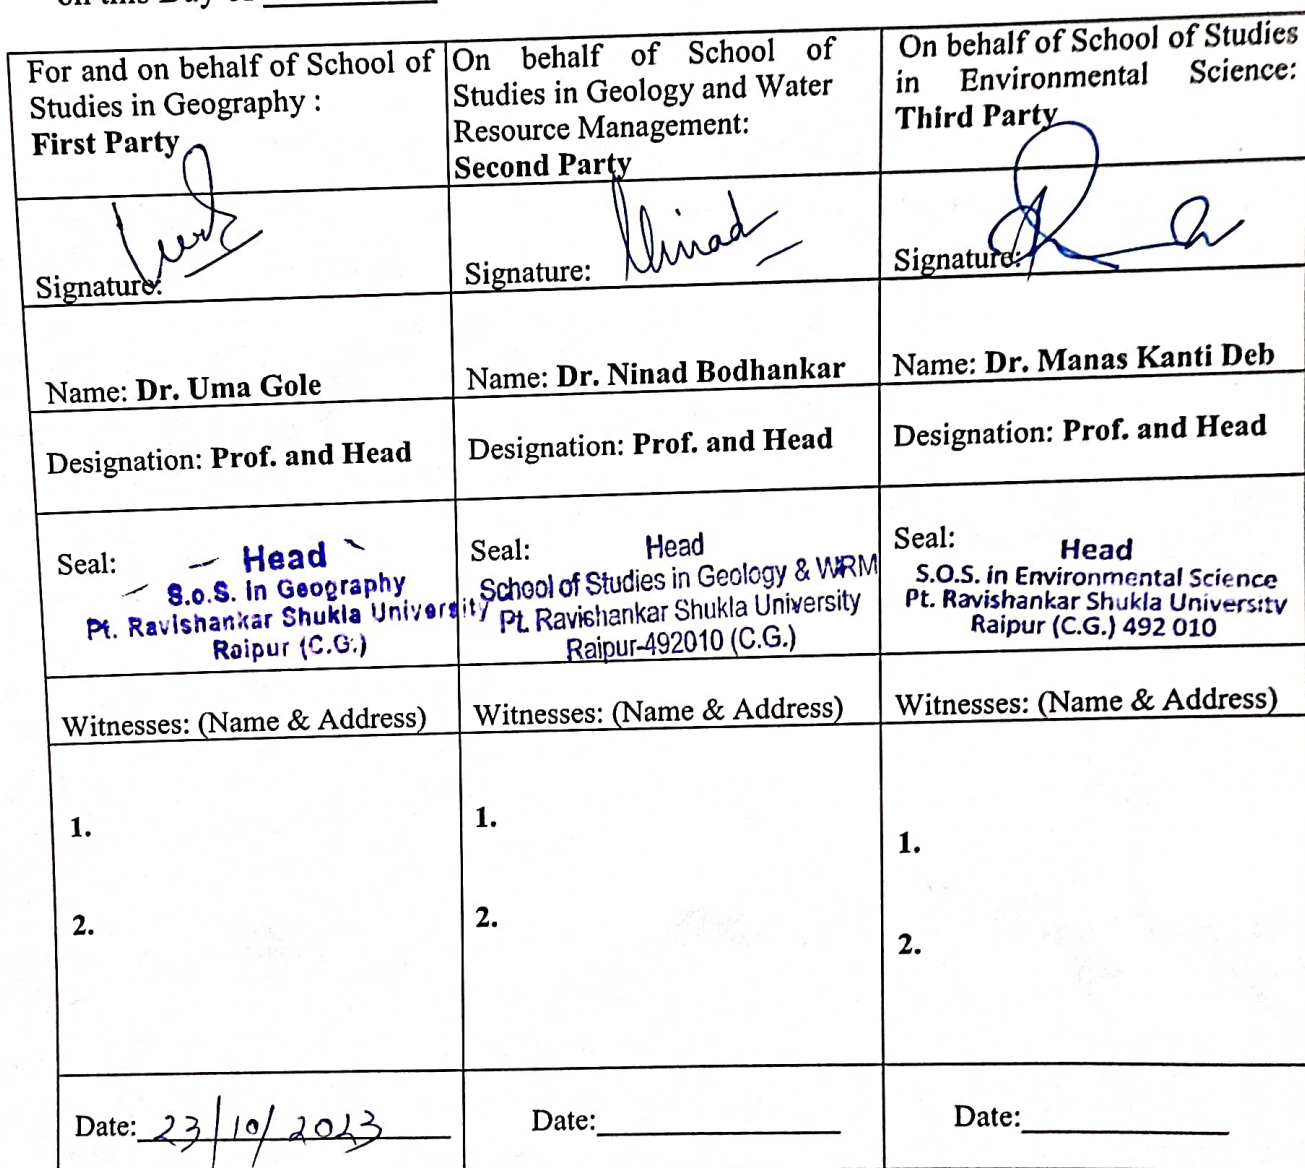 on this Day of
For and on behalf of School of
Studies in Geography :
First Party
On behalf of School of
Studies in Geology and Water
Resource Management:
Second Party
On behalf of School of Studies
in Environmental Science:
Third Party
Signature:
Signature: Ninad
Signature:
Name: Dr. Uma Gole
Name: Dr. Ninad Bodhankar
Name: Dr. Manas Kanti Deb
Designation: Prof. and Head
Designation: Prof. and Head
Designation: Prof. and Head
Seal:
Head
S.o.S. in Geography
Pt. Ravishankar Shukla University
Raipur (C.G.)
Seal:
Head
School of Studies in Geology & WRM
Pt. Ravishankar Shukla University
Raipur-492010 (C.G.)
Seal:
Head
S.O.S. in Environmental Science
Pt. Ravishankar Shukla University
Raipur (C.G.) 492 010
Witnesses: (Name & Address)
Witnesses: (Name & Address)
Witnesses: (Name & Address)
1.
2.
1.
2.
1.
2.
Date: 23/10/2023
Date:
Date: